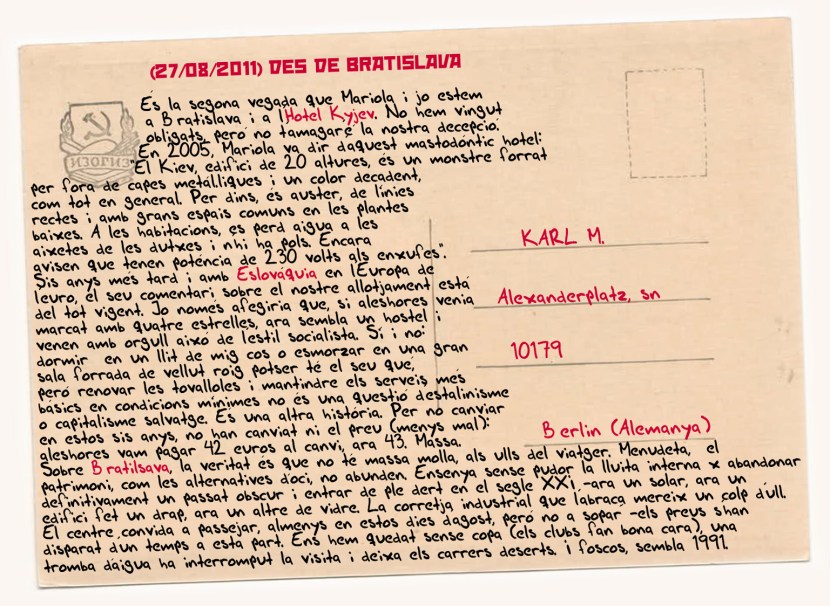 (27/08/2011) DES DE BRATISLAVA
És la segona vegada que Mariola i jo estem
a Bratislava i a l'Hotel Kyjev. No hem vingut
obligats, però no tamagaré la nostra decepció.
En 2005, Mariola va dir daquest mastodòntic hotel:
"El Kiev, edifici de 20 altures, és un monstre forrat
per fora de capes metàl.liques i un color decadent,
com tot en general. Per dins, és auster, de línies
rectes i amb grans espais comuns en les plantes
baixes. A les habitacions, es perd aigua a les
aixetes de les dutxes i nhi ha pols. Encara
avisen que tenen potència de 230 volts als enxufes".
Sis anys més tard i amb Eslovàquia en lEuropa de
leuro, el seu comentari sobre el nostre allotjament està
del tot vigent. Jo només afegiria que, si aleshores venia
marcat amb quatre estrelles, ara sembla un hostel i
venen amb orgull això de lestil socialista. Sí i no:
dormir en un llit de mig cos o esmorzar en una gran
sala forrada de vellut roig potser té el seu què,
però renovar les tovalloles i mantindre els serveis més
bàsics en condicions mínimes no és una qüestió destalinisme
o capitalisme salvatge. És una altra història. Per no canviar
en estos sis anys, no han canviat ni el preu (menys mal):
aleshores vam pagar 42 euros al canvi, ara 43. Massa.
Sobre Bratilsava, la veritat és que no té massa molla, als ulls del viatger. Menudeta, el
patrimoni, com les alternatives doci, no abunden. Ensenya sense pudor la lluita interna x abandonar
definitivament un passat obscur i entrar de ple dert en el segle XXI -ara un solar, ara un
edifici fet un drap, ara un altre de vidre. La corretja industrial que labraça mereix un colp dull.
El centre convida a passejar, almenys en estos dies dagost, però no a sopar -els preus shan
disparat dun temps a esta part. Ens hem quedat sense copa (els clubs fan bona cara), una
tromba daigua ha interromput la visita i deixa els carrers deserts. i foscos, sembla 1991.
ИЗОГИЗ
KARL M.
Alexanderplatz, sn
10179
Berlin (Alemanya)